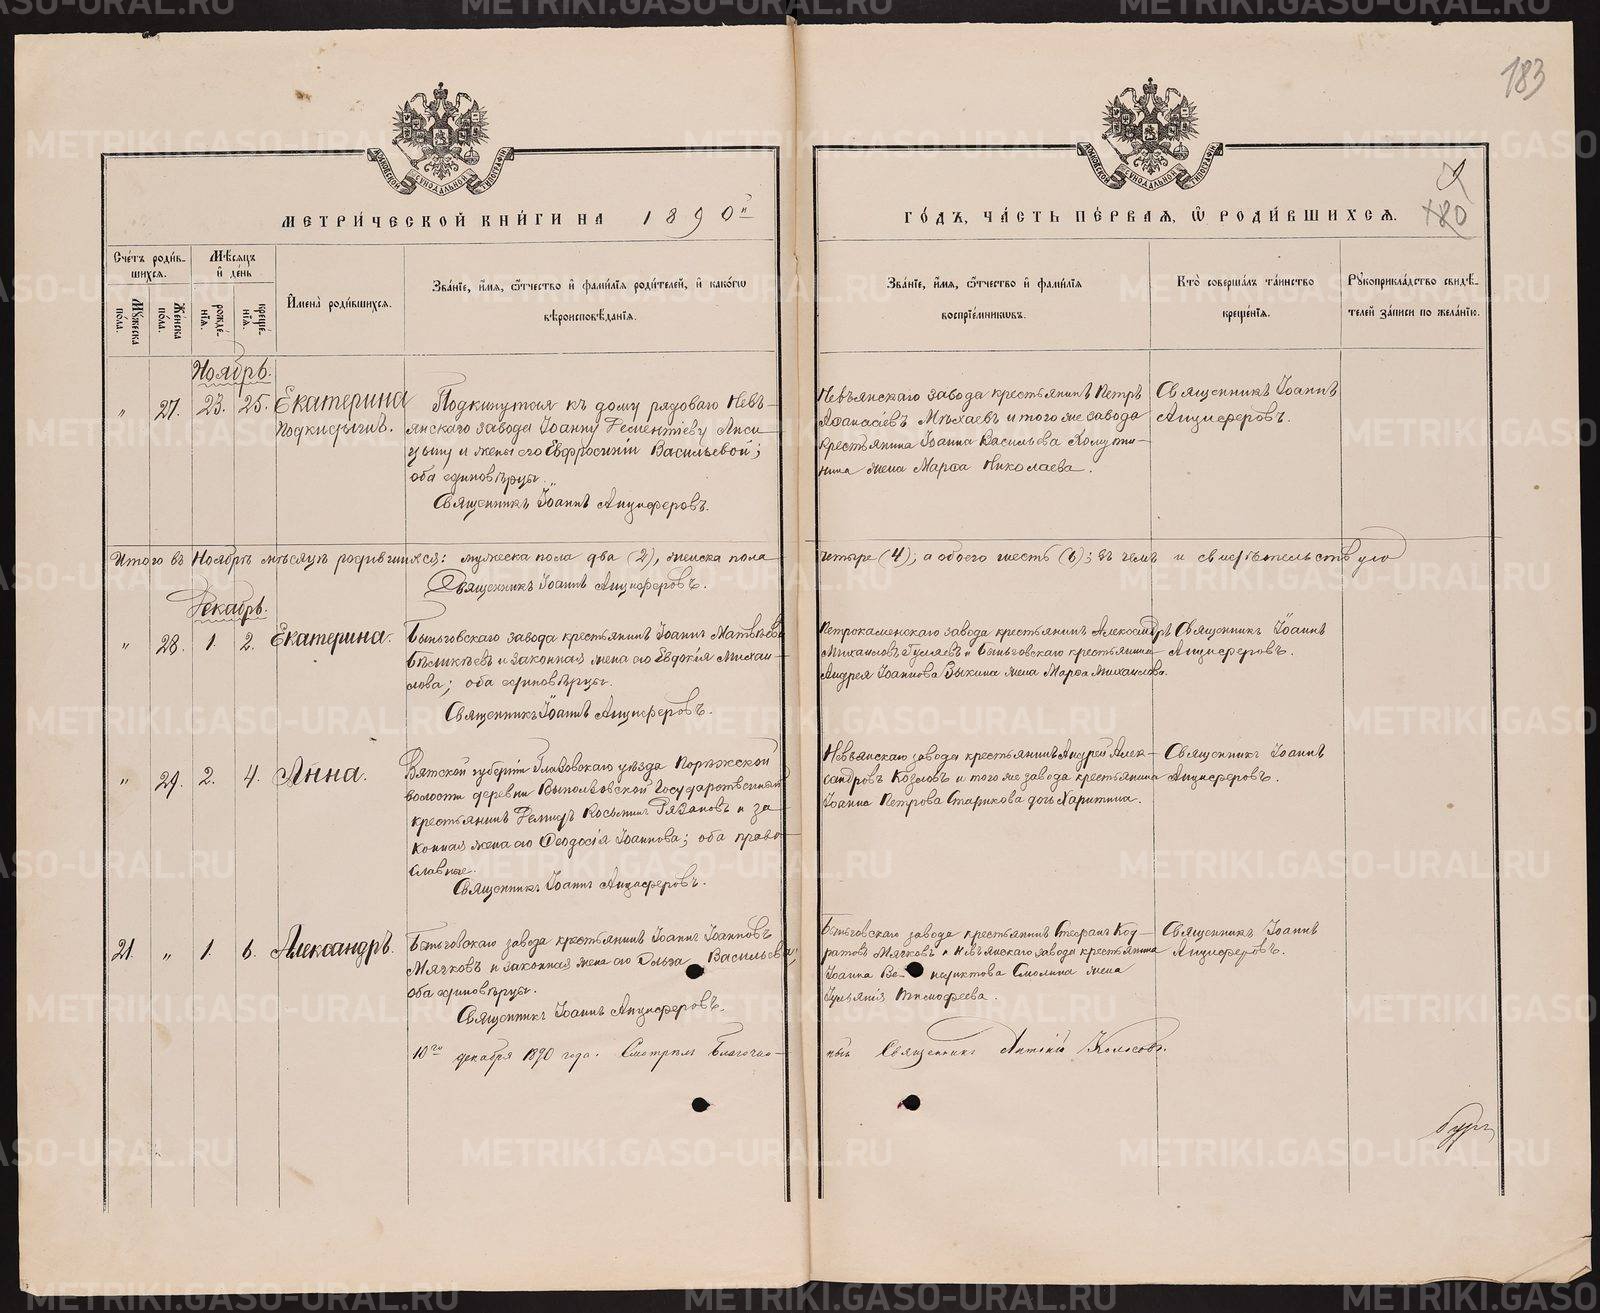 183
180
МЕТРИ́ЧЕСКОЙ КНИ́ГИ НА 1890й
ГО́ДЪ, ЧА́СТЬ ПЕ́РВАЯ, Ѡ РОДИ́ВШИХСЯ.
Сче́тъ роди́в-
шихся.
Мѣ́сяцъ
и̂ де́нь
Мꙋ́жеска
по́ла.
Же́нска
по́ла.
рожде́-
нїя.
креще́-
нїя.
И̂мена̀ роди́вшихся.
Зва́нїе, и̂́мя, ѻ̂́тчество и̂ фами́лїя роди́телей, и̂ како́гѡ
вѣроисповѣ́данїя.
Зва́нїе, и̂́мя, ѻ̂́тчество и̂ фами́лїя
воспрїе́мниковъ.
Кто̀ соверша́лъ та́инство
креще́нїя.
Рꙋкоприкла́дство свидѣ́-
телей за́писи по жела́нїю.
Ноябрь.
" 27. 23. 25. Екатерина
Подкидышъ.
Подкинутая къ дому рядоваго Невь-
янскаго завода Іоанну Дементіеву Лиси-
цыну и жены его Евфросиніи Васильевой;
оба единовѣрцы.
Священникъ Іоаннъ Анциферовъ.
Невьянскаго завода крестьянинъ Петръ
Аѳанасіевъ Мѣхаевъ и того же завода
крестьянина Іоанна Васильева Хомути-
нина жена Марѳа Николаева.
Священникъ Іоаннъ
Анциферовъ.
Итого въ Ноябрѣ мѣсяцѣ родившихся: мужеска пола два (2), женска пола
четыре (4); а обоего шесть (6); въ чемъ и свидѣтельствую
Священникъ Іоаннъ Анциферовъ.
Декабрь.
" 28. 1. 2. Екатерина.
Быньговскаго завода крестьянинъ Іоаннъ Матвѣевъ
и законная жена его Евдокія Михаи-
лова; оба единовѣрцы.
Священникъ Іоаннъ Анциферовъ.
Петрокаменскаго завода крестьянинъ Александръ
Михаиловъ Гуляевъ и Быньговскаго крестьянина
Андрея Іоаннова Зыкина жена Марѳа Михаилова.
Священникъ Іоаннъ
Анциферовъ.
" 29. 2. 4. Анна.
Вятской губерніи Глазовскаго уѣзда Порѣжской
волости деревни Выползовской Государственный
крестьянинъ Демидъ Косьминъ Рязановъ и за-
конная жена его Ѳеодосія Іоаннова; оба право-
славные.
Священникъ Іоаннъ Анциферовъ.
Невьянскаго завода крестьянинъ Андрей Алек-
сандровъ Козловъ и того же завода крестьянина
Іоанна Петрова Старикова дочь Харитина.
Священникъ Іоаннъ
Анциферовъ.
21. " 1. 6. Александръ.
Быньговскаго завода крестьянинъ Іоаннъ Іоанновъ
Мячковъ и законная жена его Ольга Васильева;
оба единовѣрцы.
Священникъ Іоаннъ Анциферовъ.
Быньговскаго завода крестьянинъ Стефанъ Код-
ратовъ Мячковъ и Невьянскаго завода крестьянина
Іоанна Венедиктова Смолина жена
Іуліанія Тимофеева.
Священникъ Іоаннъ
Анциферовъ.
10го декабря 1890 года. Смотрѣлъ Благочин-
ный Священникъ Антоній Колосовъ.